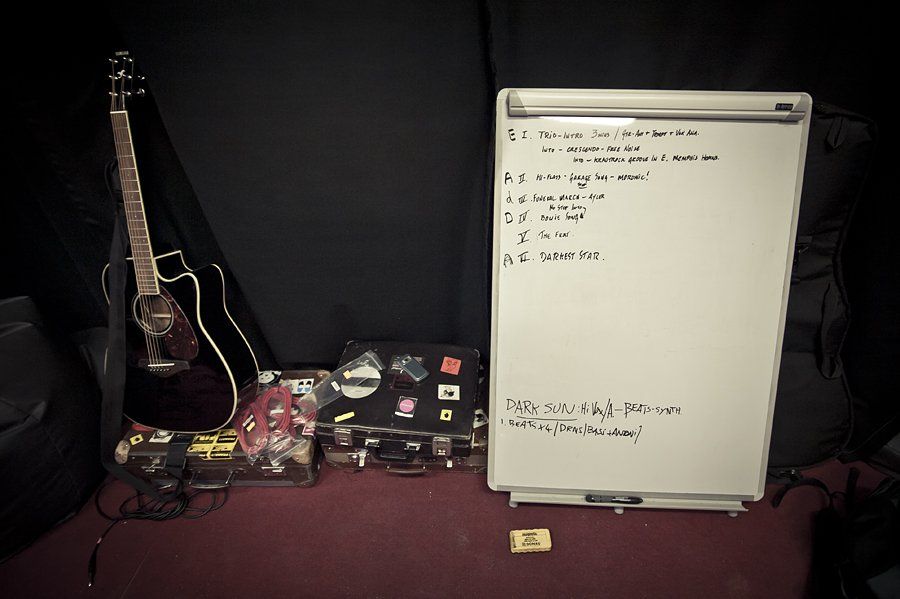 E I. TRIO-INTRO 3MINS / GTR-AMI + TEMPT + VOX ANA.
INTO - CRESCENDO - FREE NOISE
INTO - KRAUTROCK GROOVE IN E. MEMPHIS HORNS.
A II. HI-FLOSS - GARAGE SONG - MOTORIC!
STOP
d III. FUNERAL MARCH - AYLER
NO STOP INTO
D IV. BOWIE SONG
V THE FEAR.
A VI. DARKEST STAR.
DARK SUN: Hi VOX/A - BEATS-SYNTH
1. BEATS X4 / DRMS / BASS + ANTONI